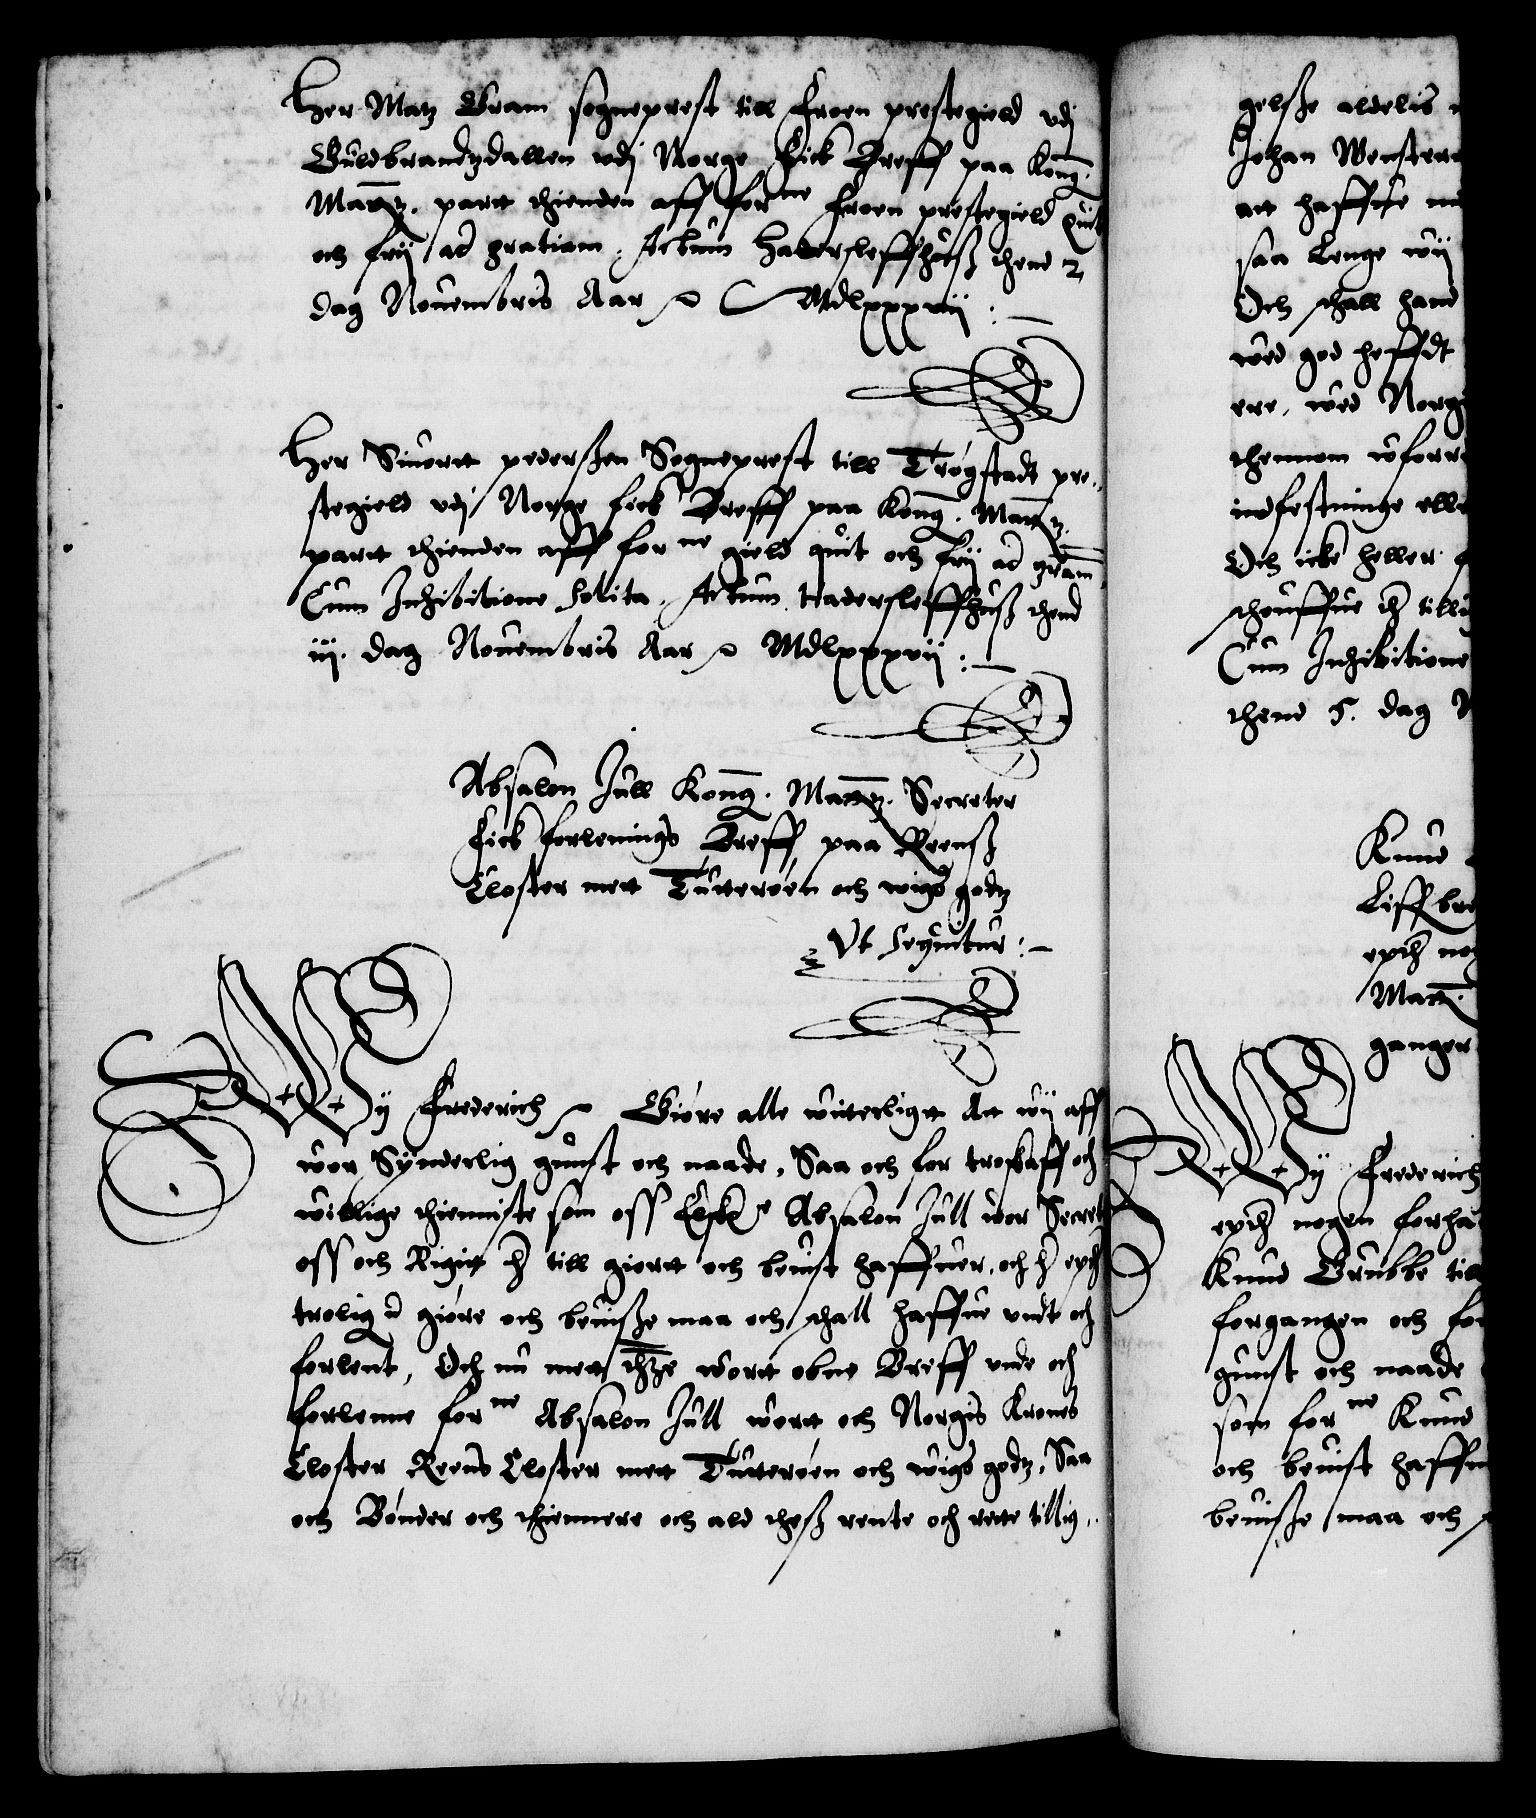 Her Matz Gram sogneprest till Froen prestegield vdj
Guldbrandzdallen vdj Norge Fick Breff paa Kong.
Matz. partt thienden aff forne Froen prestegield Quit
och frij ad gratiam, Actum Hadersleffhuß thend 2
dag Nouembris Aar MDlxxxvij :—
Her Siuortt pederßen Sogneprest till Trøgstads pre-
stegield vdj Norge fick Breff paa Kong. Matz.
partt thienden aff forne gield quit och frij ad gram
Cum Inhibitione Solita, Actum Hadersleffhuß thend
iij. dag Nouembris Aar MDlxxxvij :—
Absalon Jull Kong. Matz. Secreter
Fick forlenings Breff paa Reenß
Closter mett Tutterøen och wigs godz
Vt Sequitur :—
Wij Frederich Giøre alle witterligtt Att wij aff
wor Synderlig gunst och naade, Saa och for troskaff och
willige thienniste som oss Elske Absalon Jull wor Secret
oss och Rigitt her till giortt och beuist haffuer, och her epther
trolig giøre och beuiße maa och schall haffue vndt och
forlent, Och nu mett thze wortt obne Breff vnde och
forlenne forne Absalon Jull wortt och Norgis Krones
Closter Reens Closter mett Tutterøen och wigs godz, Saa
och Bønder och thiennere och ald theß rente och rette tillig-
gelße aldelis
Johan Wenster
att haffue
saa Lenge wij
Och schall hand
wed god heffdt
ere, wed Norg
thennom wforr
indfestninge elle
Och icke heller
schouffue till
Cum Inhibitione
thend 5. dag
Knud
Liffbre
epther
Matt.
ganger
Wij Frederich
epther nogen forha
Knud Grubbe till
forgangen och for
gunst och naade
som forne Knud
och beuist haffu
beuiße maa och